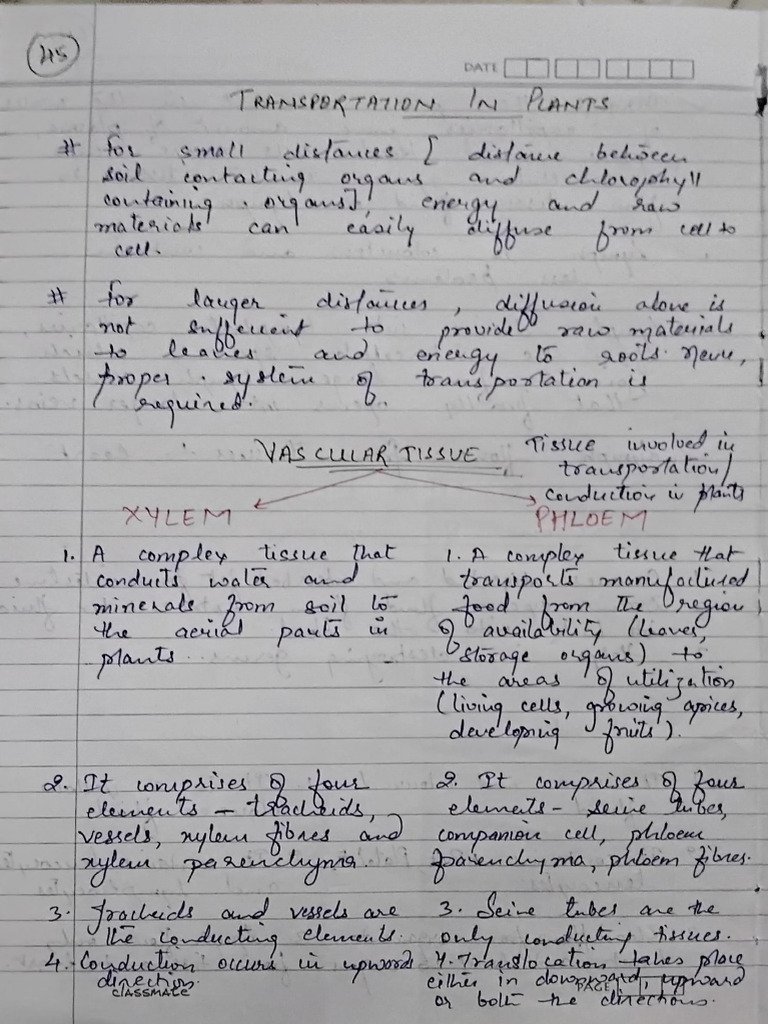 45
DATE
TRANSPORTATION IN PLANTS
# For small distances [ distance between
soil contacting organs and chlorophyll
containing organs], energy and raw
materials can easily diffuse from cell to
cell.
# For larger distances, diffusion alone is
not sufficient to provide raw materials
to leaves and energy to roots. Hence,
proper system of transportation is
required.
VASCULAR TISSUE
Tissue involved in
transportation/
conduction in plants
XYLEM
1. A complex tissue that
conducts water and
minerals from soil to
the aerial parts in
plants.
2. It comprises of four
elements - tracheids,
vessels, xylem fibres and
xylem parenchyma.
3. Tracheids and vessels are
the conducting elements.
4. Conduction occurs in upwards
direction.
PHLOEM
1. A complex tissue that
transports manufactured
food from the region
of availability (leaves,
storage organs) to
the areas of utilization
(living cells, growing apices,
developing fruits).
2. It comprises of four
elements - seive tubes,
companion cell, phloem
parenchyma, phloem fibres.
3. Seive tubes are the
only conducting tissues.
4. Translocation takes place
either in downward, upward
or both the directions.
CLASSMATE
PAGE